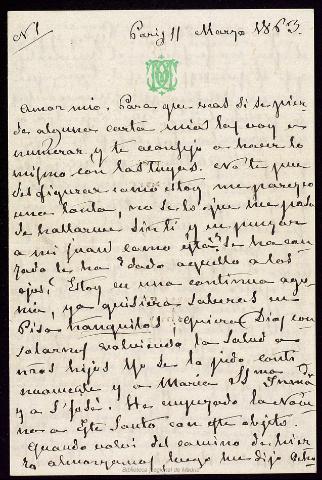 Nº 1
Paris 11 Marzo 1863.
Amor mio. Para que veas si se pier-
de alguna carta mia las voy a
numerar, y te aconsejo a hacer lo
mismo con las tuyas. No te pue-
des figurar como estoy me parezco
una tonta, no se lo que me pasa
de hallarme sin ti y sin
a mi Juan como
le ha dado aquello a los
ojos? Estoy en una continua ago-
nia, ya quisiera saberos en
Pisa tranquilos quiera Dios con-
solarnos volviendo la salud a
nros hijos Yo se la pido conti-
nuamente y a Maria SSma
y a Sn José. He empezado la Nove-
na a Este Santo con este objeto.
Quando volvi del camino de hier-
ro almorzemos luego me dijo
Biblioteca Regional de Madrid